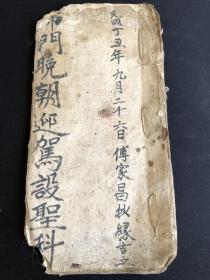 民國丁丑年九月二十六日傅家昌抄緣吉立
門晚朝迎駕設聖科